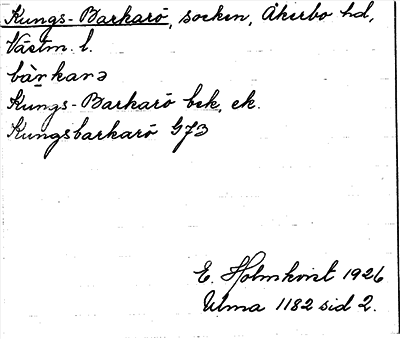 Kungs-Barkarö, socken, Åkerbo hd,
Västm. l.
bàrkarə
Kungs-Barkarö bsk, ek.
Kungsbarkarö G73
E. Holmkvist 1926
Ulma 1182 sid 2.